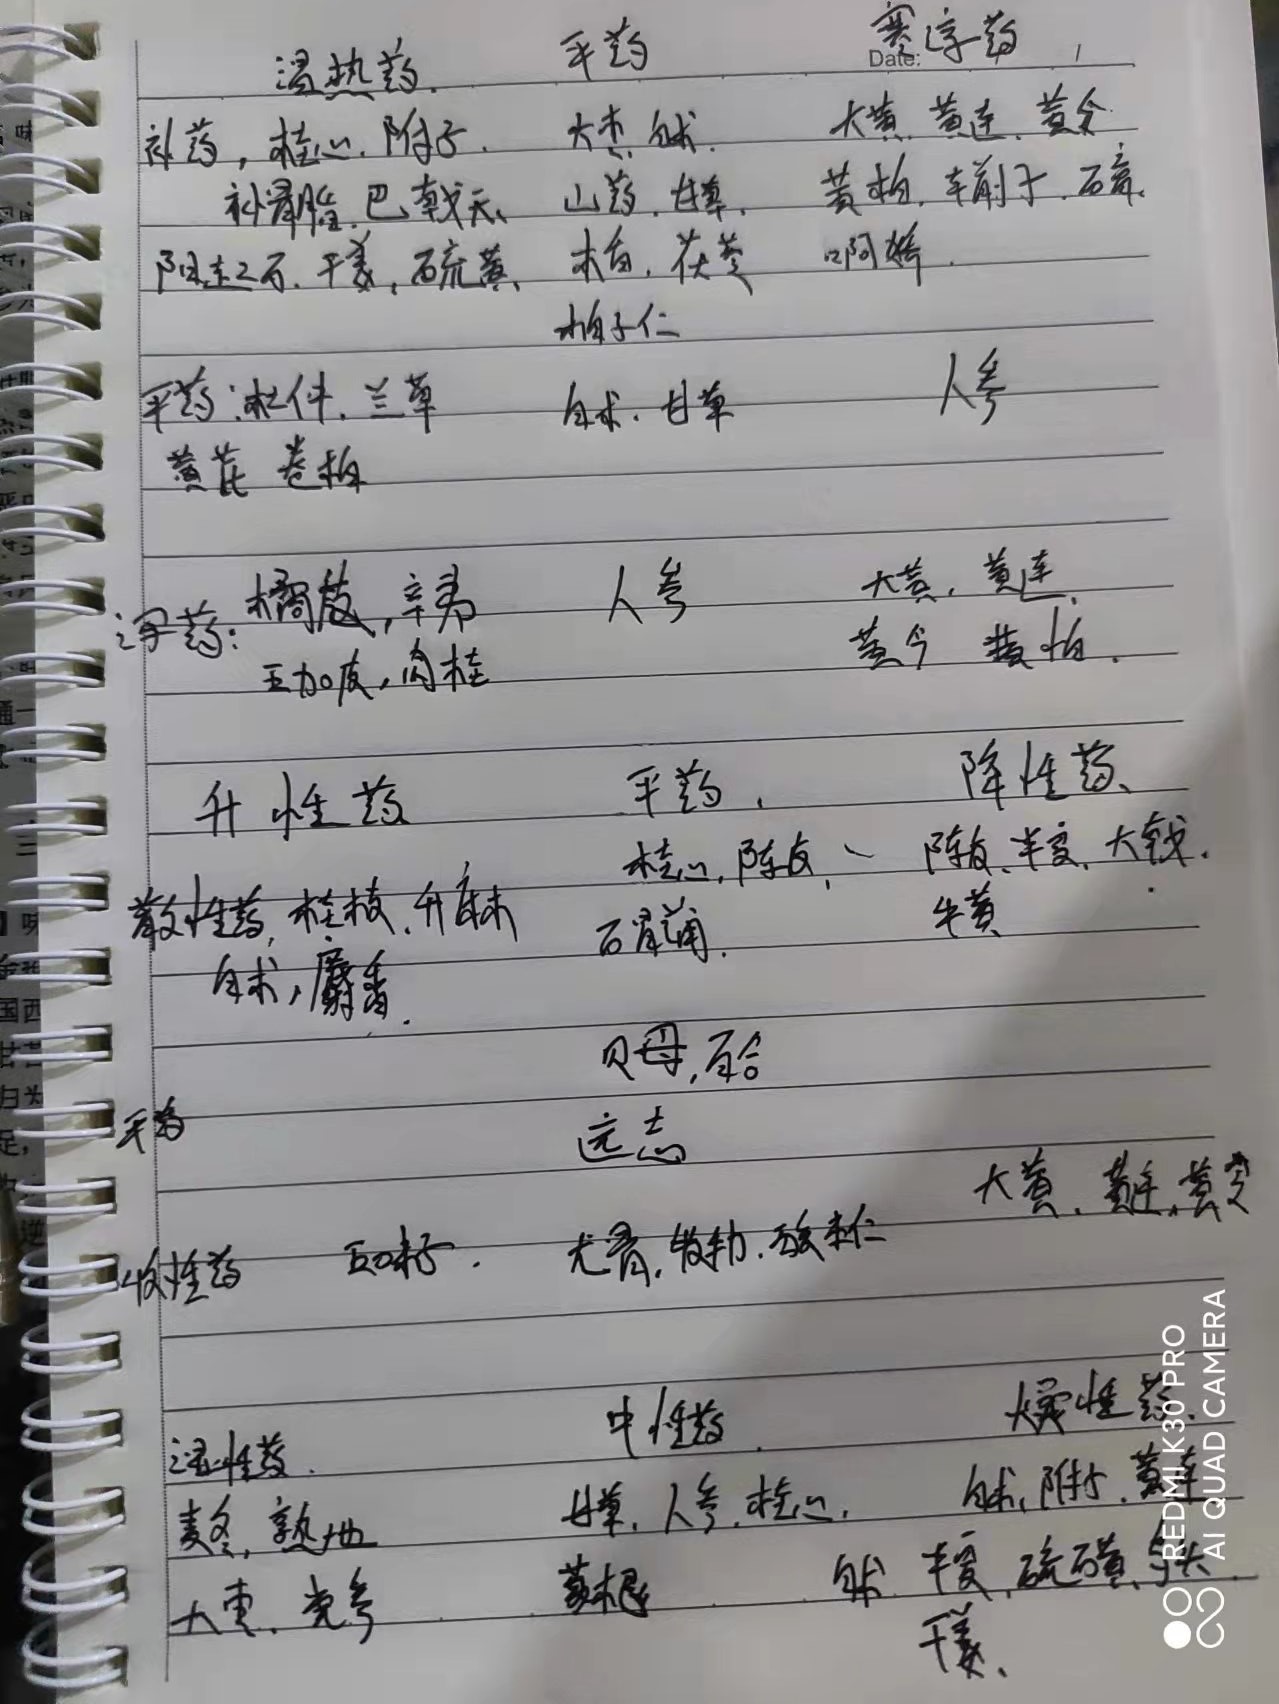 温热药 平药 寒凉药
Date:
补药,桂心、附子、 大枣、白术、 大黄、黄连、黄今
补骨脂、巴戟天、 山药、甘草、 黄柏、车前子、石膏、
阳起石、干姜,硫黄、 茯苓
柏子仁
平药:杜仲、兰草 白术、甘草 人参
黄芪 卷柏
橘皮,辛夷 人参 大黄,黄连、
药: 五加皮,肉桂 黄今 黄柏、
升性药 平药、 降性药、
散性药,桂枝、升麻 桂心,陈皮, 陈皮、半夏、大戟、
白术,麝香、 石菖蒲、 牛黄
贝母,百合
平药 远志
大黄、黄连,黄芩
收性药 五味子、 龙骨,牡蛎、酸枣仁
湿性药、 中性药、 燥性药、
麦冬,熟地 甘草、人参、桂心、 白术、附子、黄连
大枣、党参 葛根 白术 半夏,硫磺、
干姜、
REDMI K30 PRO
AI QUAD CAMERA